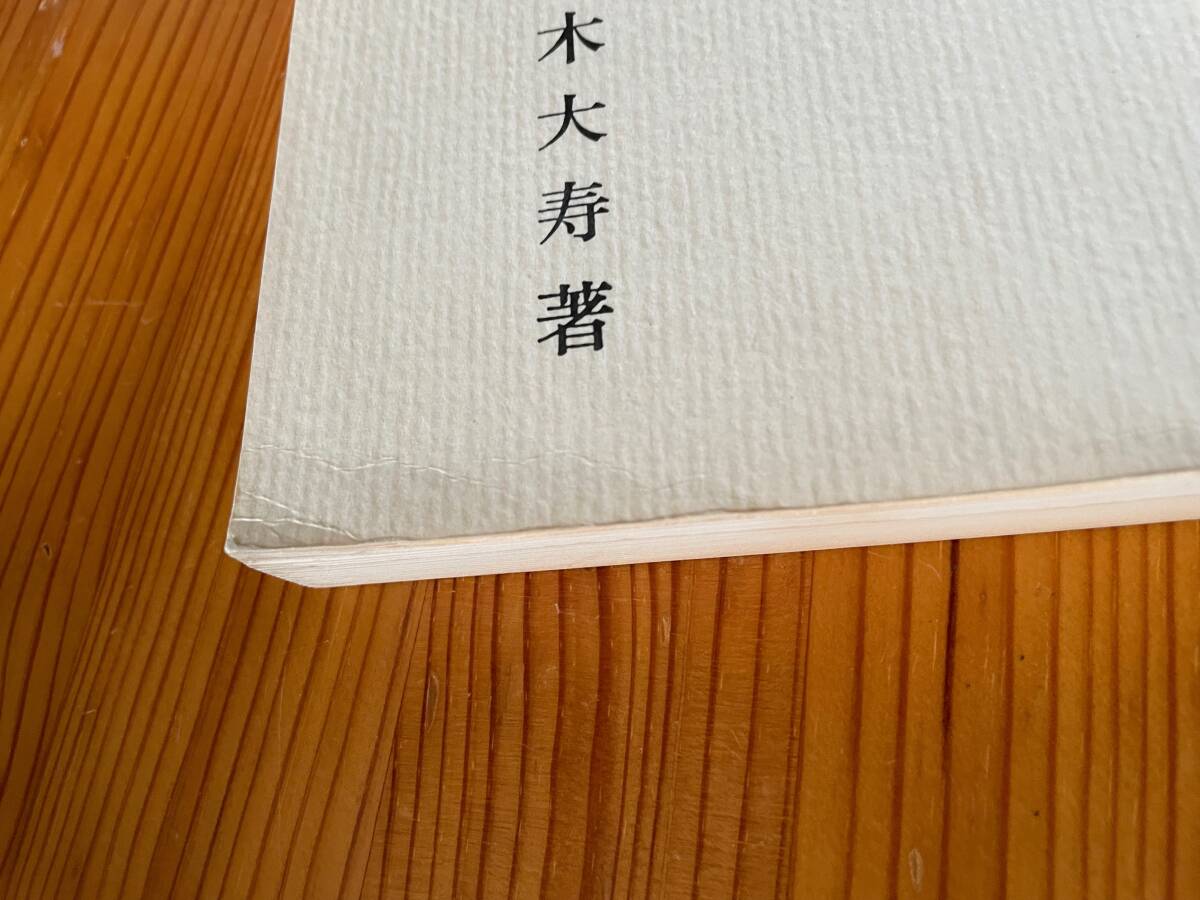 木大寿著